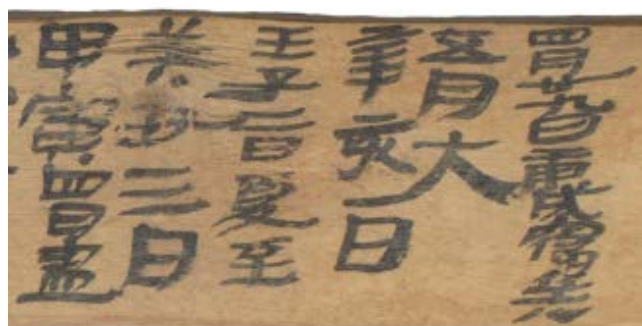 四月廿九日庚戌宿
五月大
辛亥一日
壬子二日夏至
癸丑三日
甲寅四日盡